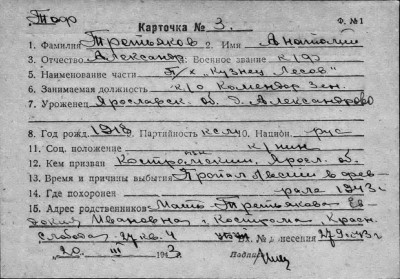 Ф. №1
Карточка № 3.
1. Фамилия Третьяков 2. Имя Анатолий
3. Отчество Александр. Военное звание к/ф
5. Наименование части п/х "Кузнец Лесов"
6. Занимаемая должность к/о Комендор Зен.
7. Уроженец Ярославск. об. д. Александрово
8. Год рожд. 1918 Партийность ксмл 10. Национ. рус
11. Соц. положение
12. Кем призван Костромским, Яросл. об.
13. Время и причины выбытия Пропал без вести в фев-
14. Где похоронен рале 1943 г
15. Адрес родственников Мать Третьякова Ев-
докия Ивановна г. Кострома Красн.
Слобода 27 кв. 4 Вх. № донесения 279с43г
"20" III 1943 г. Подпись